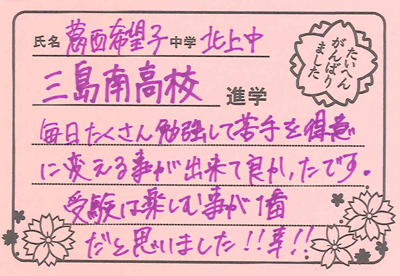 氏名 葛西希望子 中学 北上中
たいへん
がんばり
ました
三島南高校 進学
毎日たくさん勉強して苦手を得意
に変える事が出来て良かったです。
受験は楽しむ事が1番
だと思いました!!幸!!